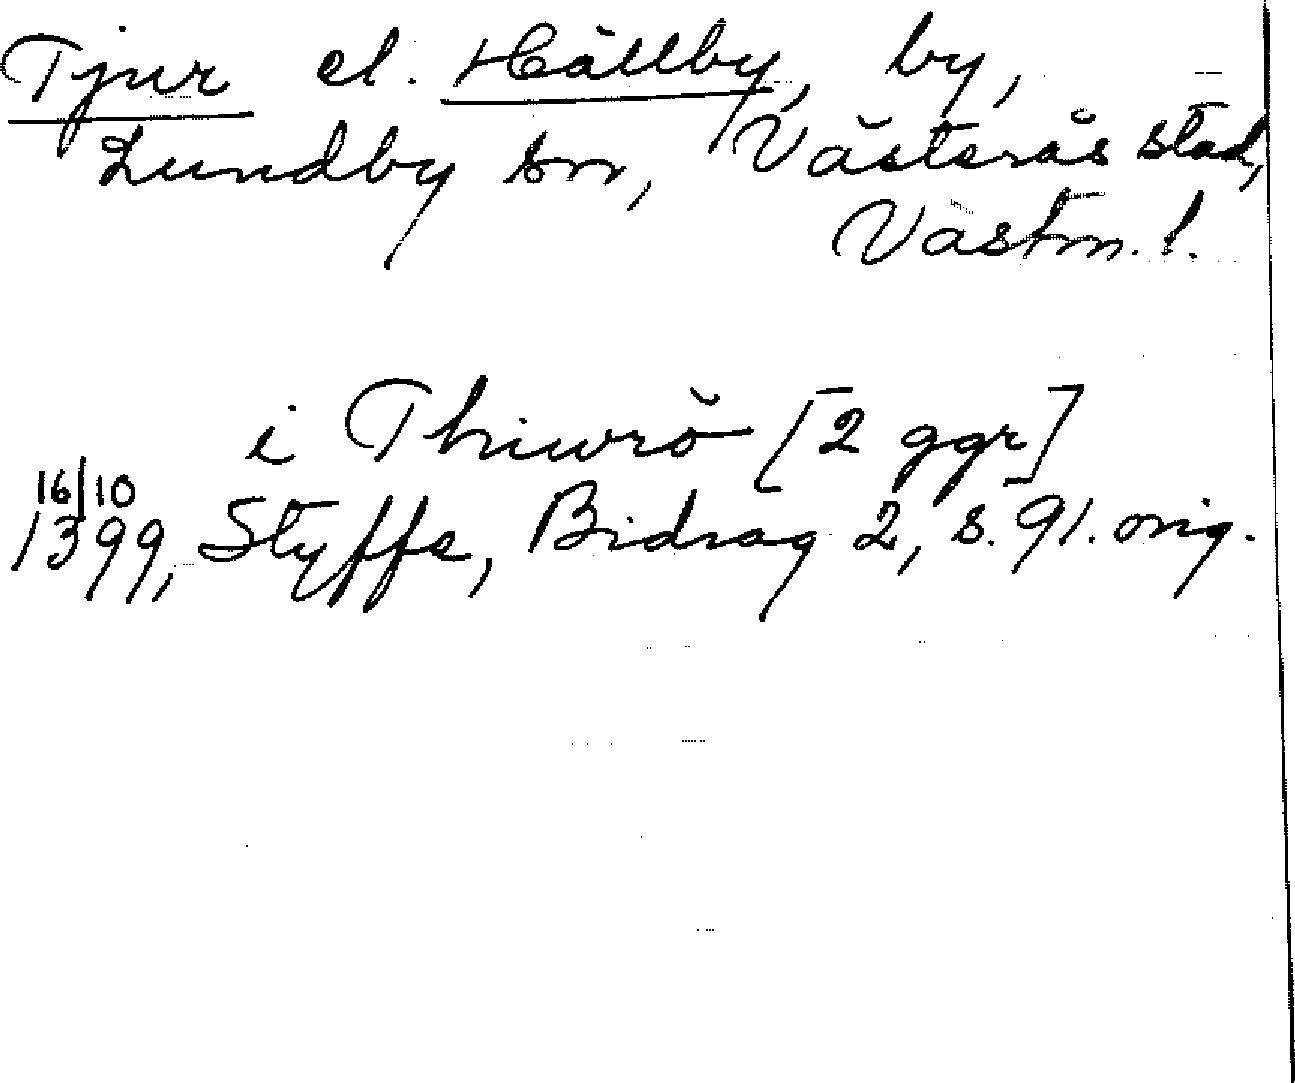 Tjur el. Hällby, by,
Lundby sn, Västerås stad,
Västm. l.
i Thiwrö [2 ggr]
16/10
1399, Styffe, Bidrag 2, s. 91. orig.